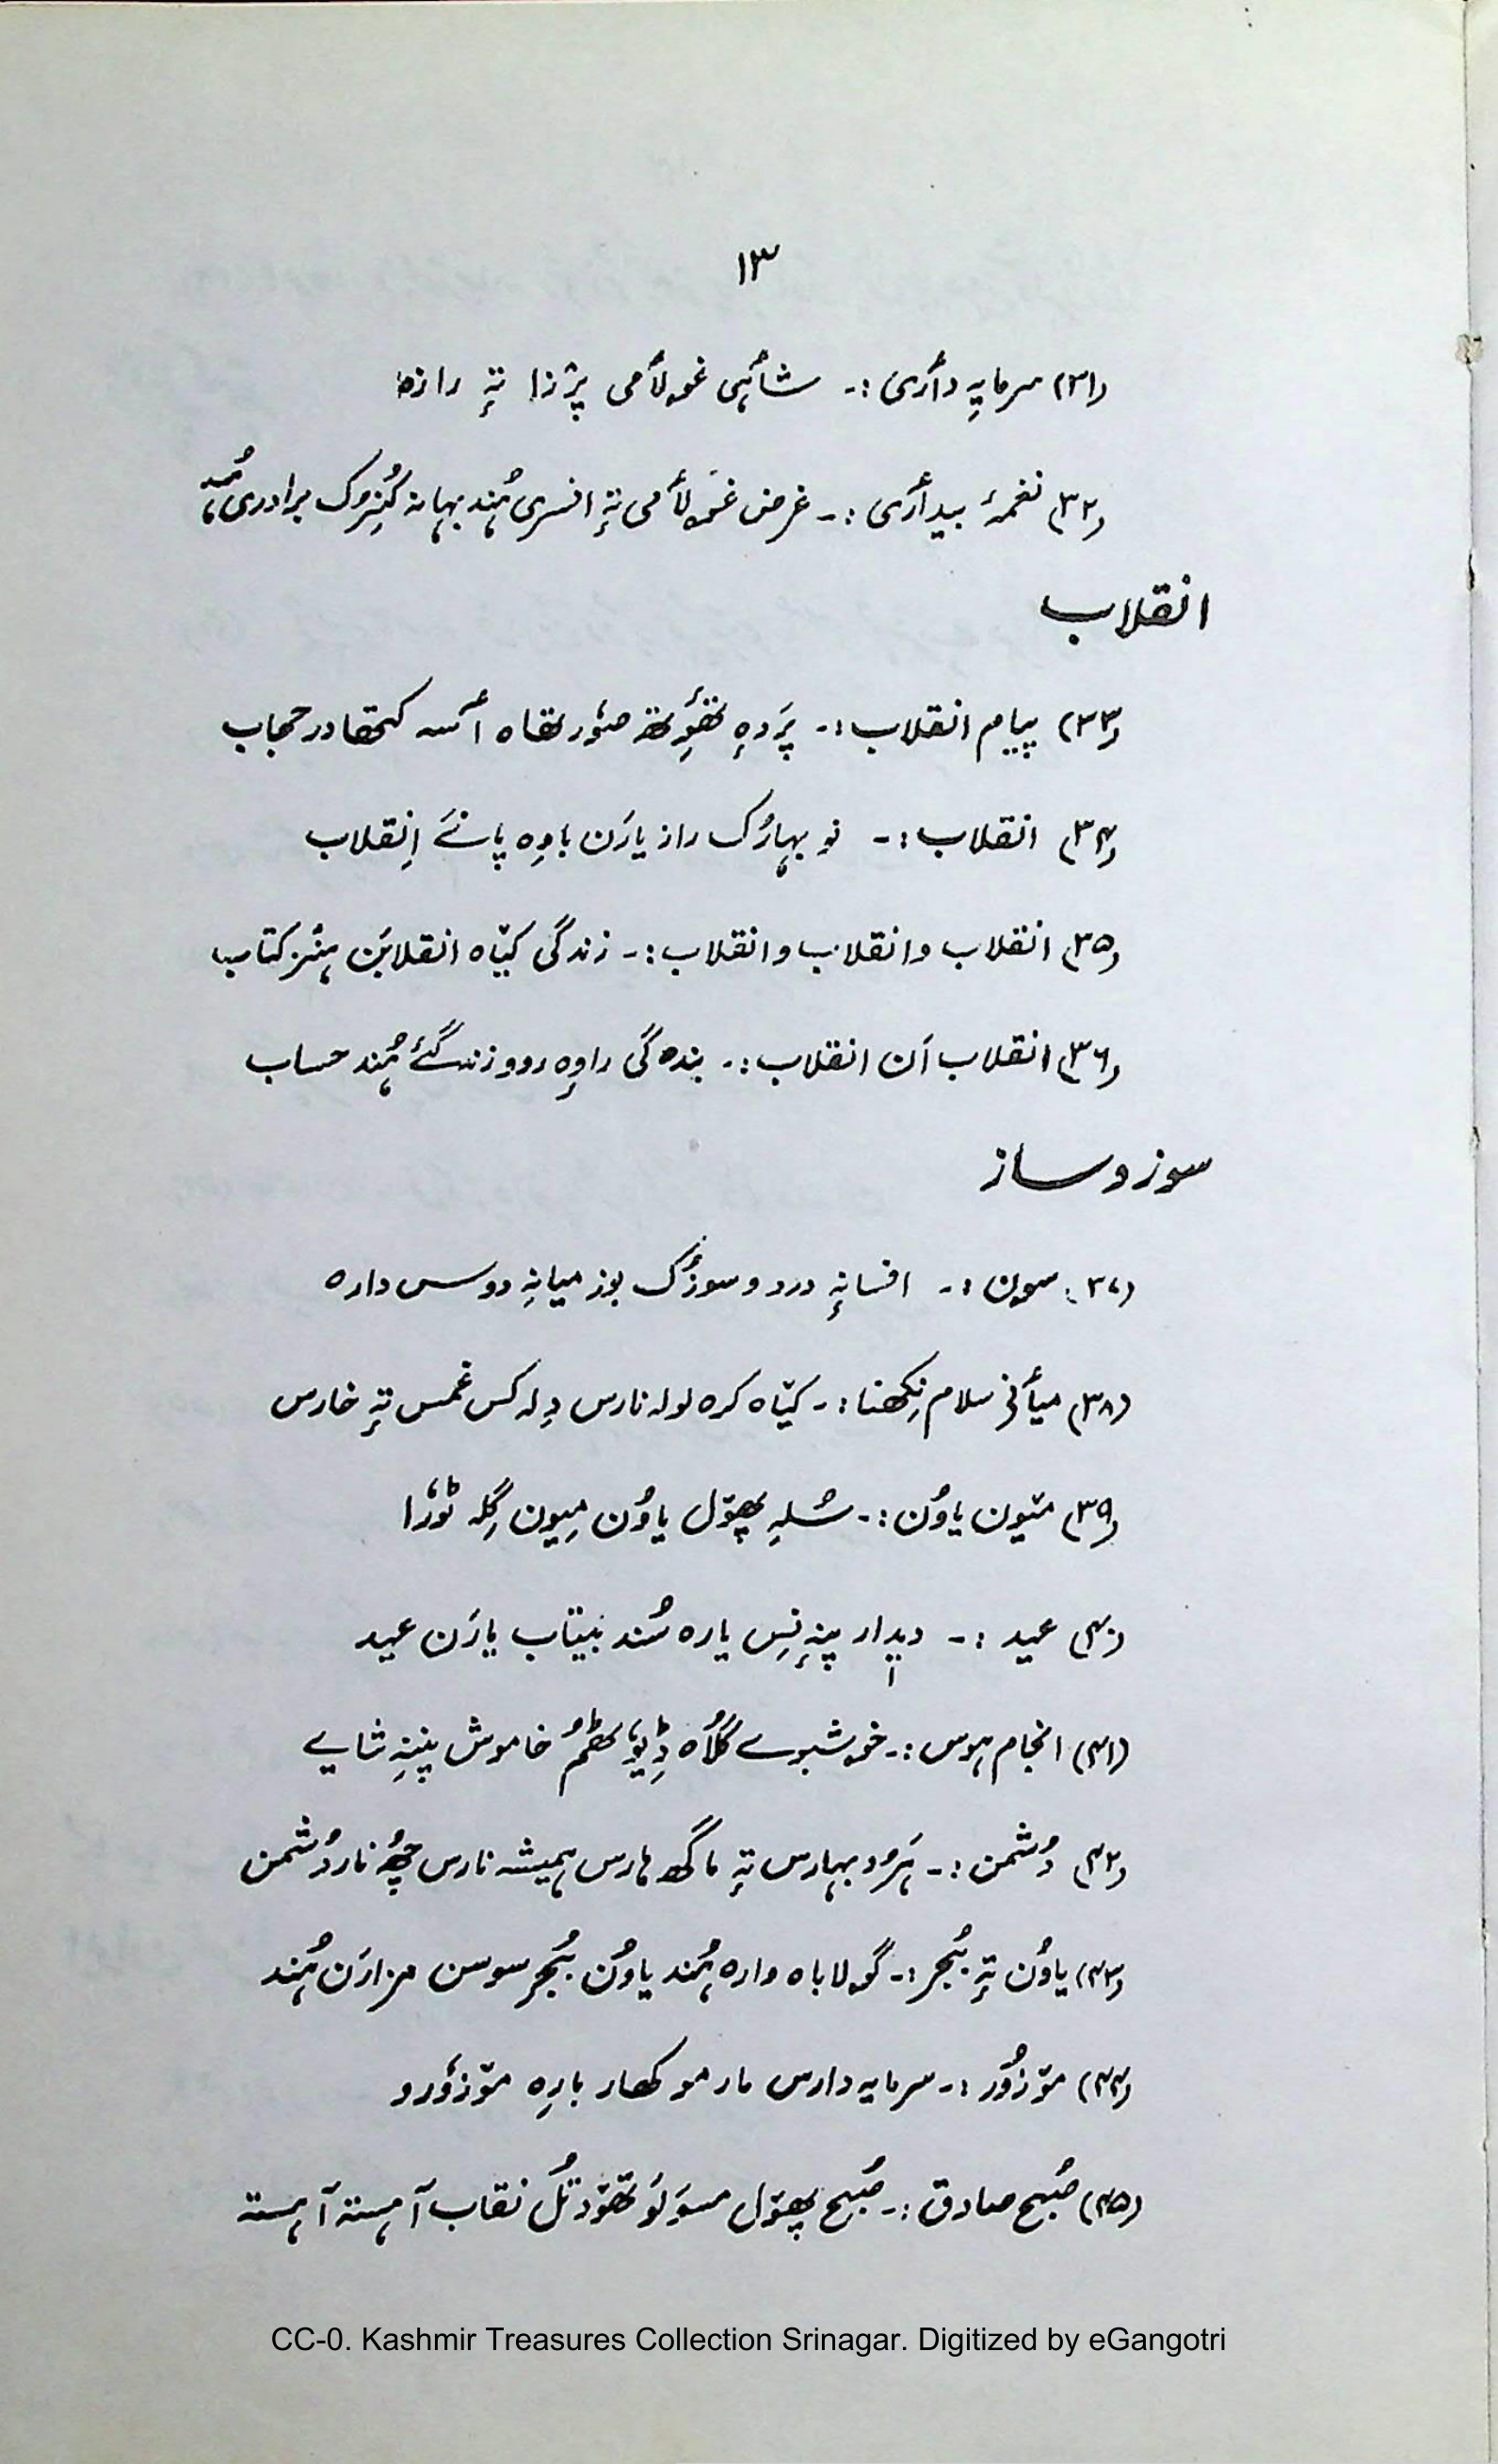 ۱۳
(۳۱) سرمایہِ دأری :۔ شأہی غولأمی پژزا تہٕ رازہ
(۳۲) نغمۂ بیدأری :۔ غرض غولأمی تہٕ افسری ہُند بہانہ کُنِرُک برادری ہُند
انقلاب
(۳۳) پیام انقلاب :۔ پَردہٕ تھٔوِتھ صوٗرتھاہ أسہ کتھا در حجاب
(۳۴) انقلاب :۔ نو بہارُک راز یارَن باوِہ پانے اِنقلاب
(۳۵) انقلاب و انقلاب و انقلاب :۔ زندگی کیّاہ انقلابَن ہنٛز کتاب
(۳۶) انقلاب اَن انقلاب :۔ بندہ گی راوِہ روو زندگیٔ ہُند حساب
سوز و ساز
(۳۷) سون :۔ افسانہٕ درد و سوزُک بوز میانہِ دوس دارہ
(۳۸) میأنی سلام نِکھنا :۔ کیّاہ کرہ لولہ نارس دِلہ کس غمس تہٕ خارس
(۳۹) میٚون یاوُن :۔ سُلہِ پھۆل یاوُن مِیون گِلہ ٹوٗرا
(۴۰) عید :۔ دیدار پنہٕ نِس یارہ سُند بیتاب یارَن عید
(۴۱) انجام ہوس :۔ خوشبوے گُلاہ ڈِیوٗٹھُم خاموش پنٕنہِ شایے
(۴۲) دُشمن :۔ ہَرُود بہارس تہٕ ماگھ ہارس ہمیشہ نارس چھُ نار دُشمن
(۴۳) یاوُن تہٕ بُجر :۔ گولاباہ وارہ ہُند یاوُن بُجر سوسن مزارَن ہُند
(۴۴) مۆزوٗر :۔ سرمایہ دارس مار مو کھار بارِہ مۆزوٗرو
(۴۵) صُبح صادق :۔ صُبح پھۆل مسوَلَو تھۆد تُل نقاب آہستہ آہستہ
CC-0. Kashmir Treasures Collection Srinagar. Digitized by eGangotri